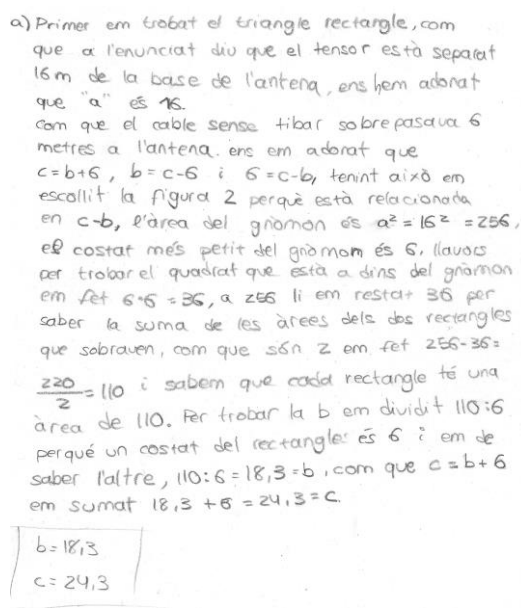 a) Primer em trobat el triangle rectangle, com
que a l'enunciat diu que el tensor està separat
16 m de la base de l'antena, ens hem adonat
que "a" és 16.
Com que el cable sense tibar sobrepasava 6
metres a l'antena. ens em adonat que
c=b+6, b=c-6 i 6=c-b, tenint això em
escollit la figura 2 perquè està relacionada
en c-b, l'àrea del gnomon és a² = 16² = 256,
el costat més petit del gnòmom és 6, llavors
per trobar el quadrat que està a dins del gnòmon
em fet 6·6 = 36, a 256 li em restat 36 per
saber la suma de les àrees dels dos rectangles
que sobraven, com que són 2 em fet 256-36=
220/2 = 110 i sabem que cada rectangle té una
àrea de 110. Per trobar la b em dividit 110:6
perqué un costat del rectangle és 6 i em de
saber l'altre, 110:6=18,3=b, com que c=b+6
em sumat 18,3 +6 = 24,3=c.
b=18,3
c=24,3